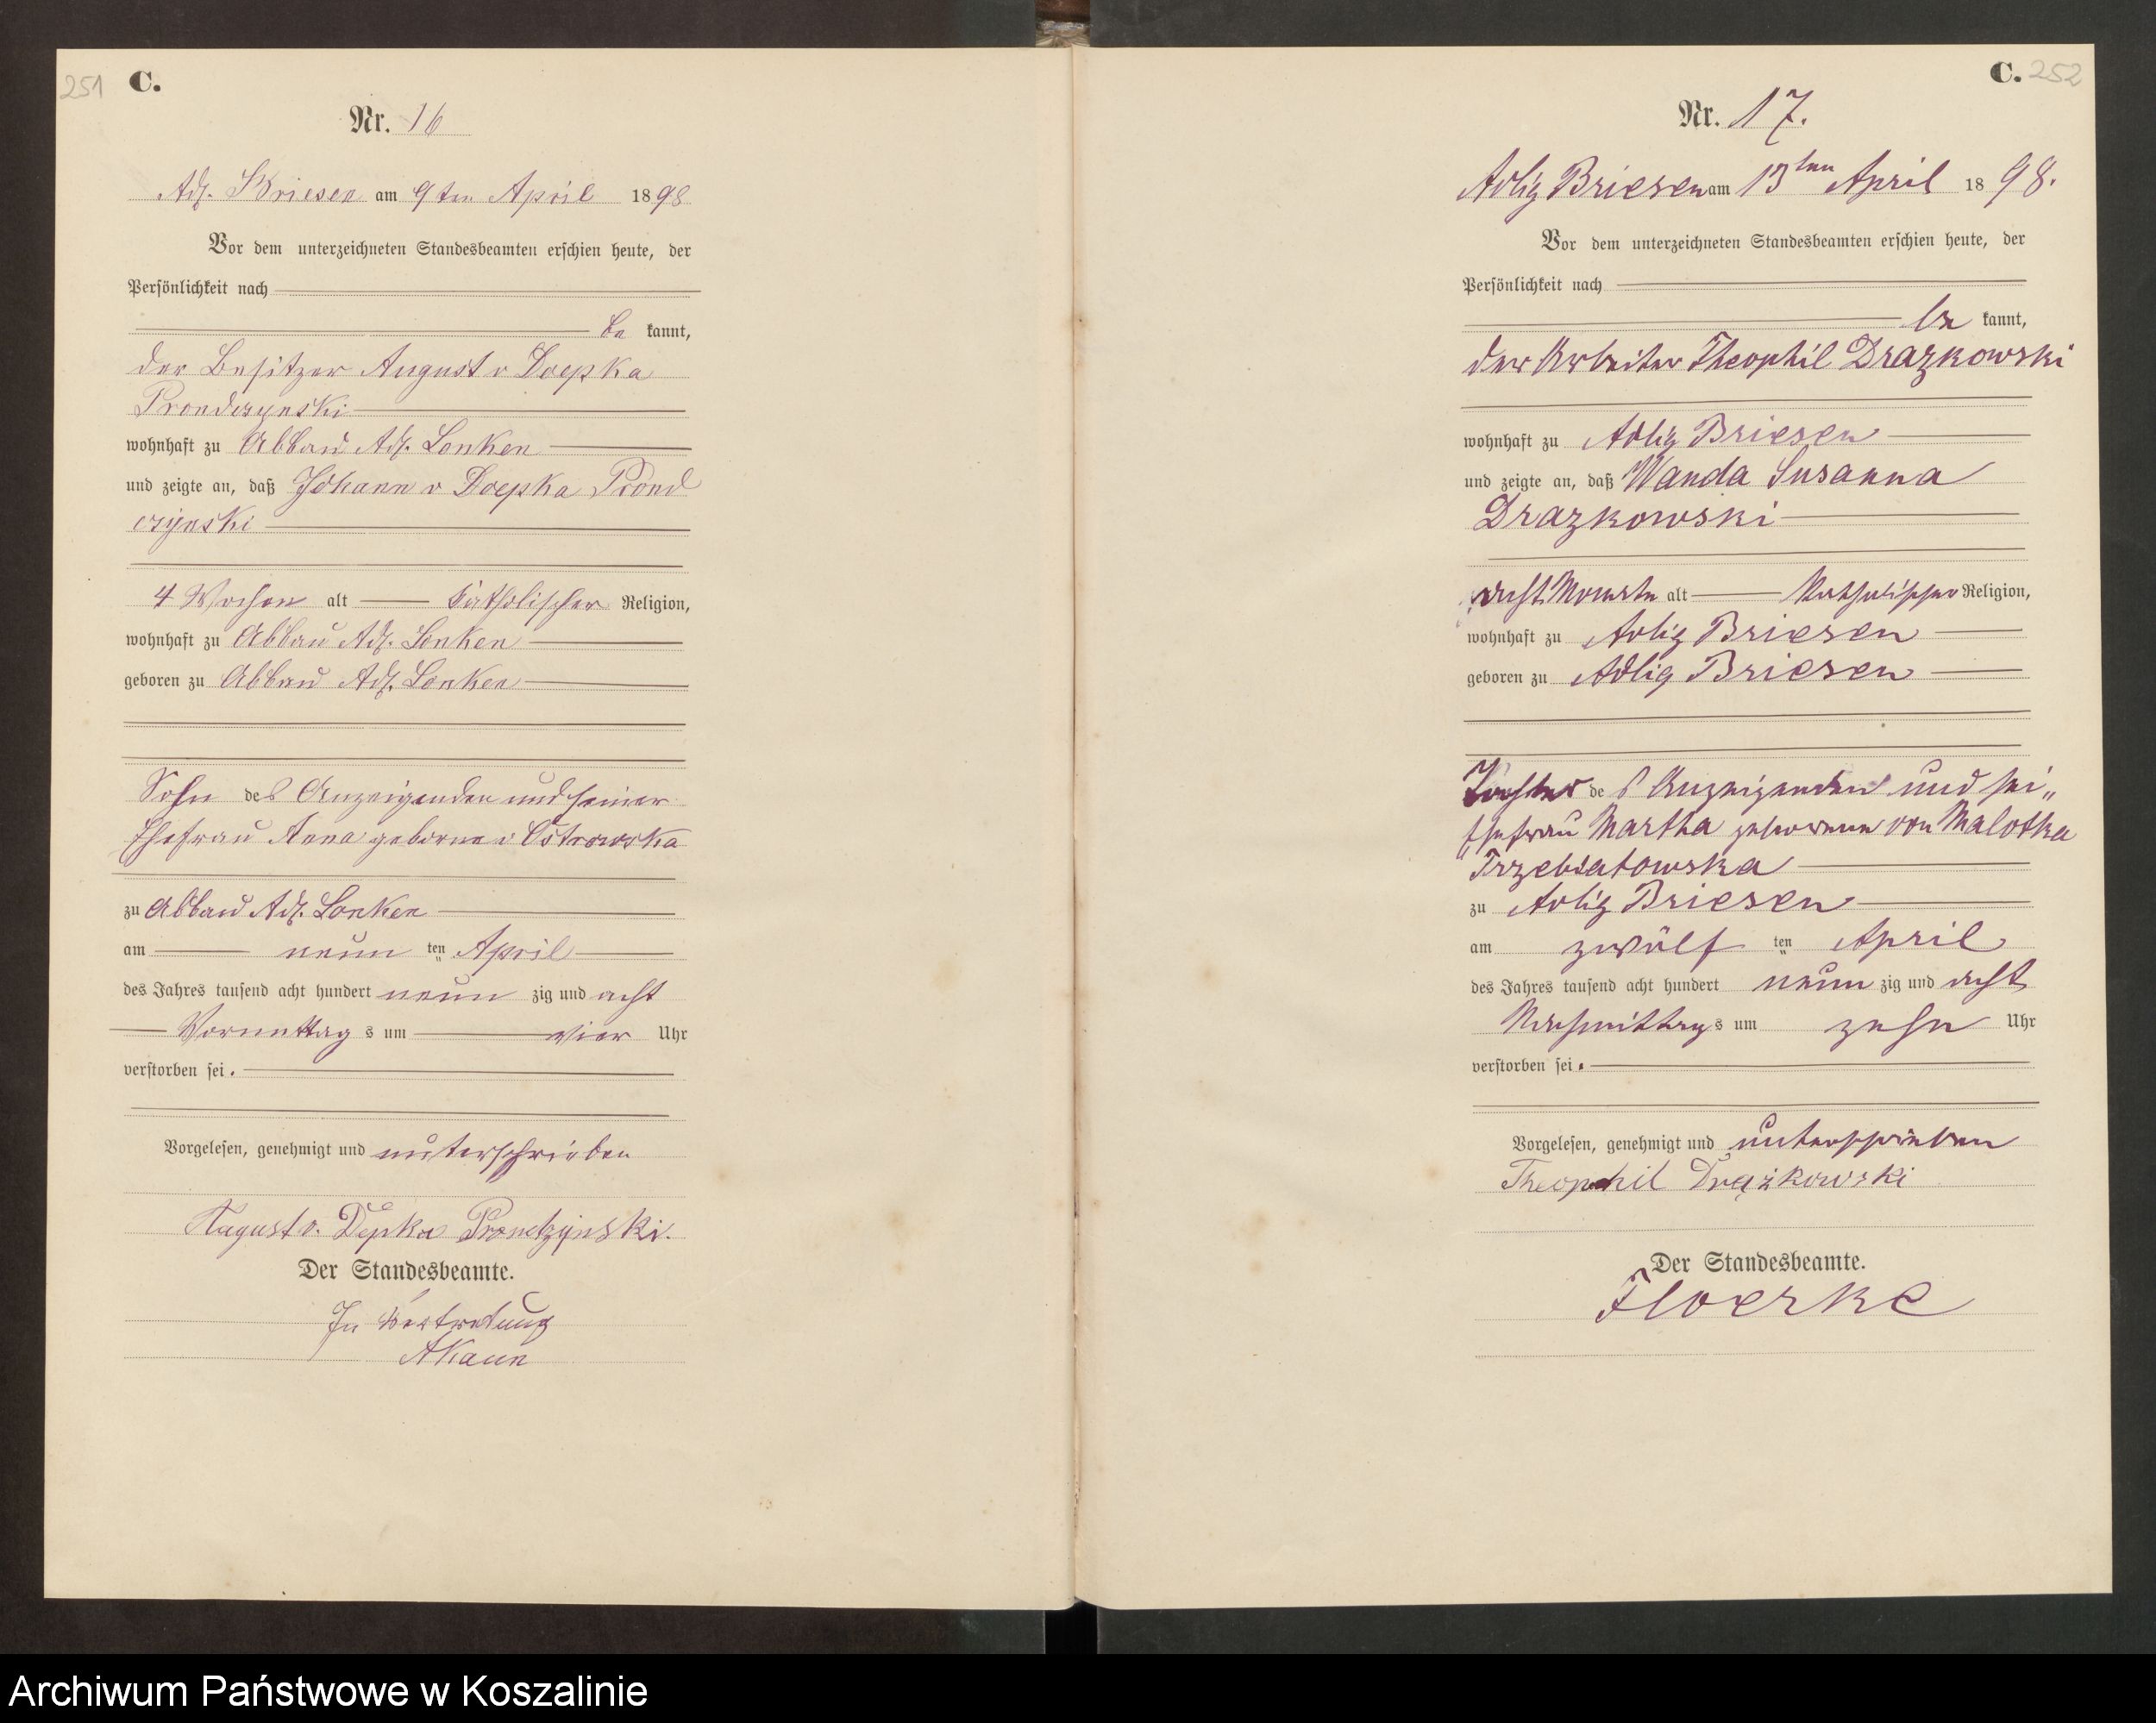 251 C.
Nr. 16
Adl. Briesen am 9ten April 1898
Vor dem unterzeichneten Standesbeamten erschien heute, der
Persönlichkeit nach
be kannt,
der Besitzer August v Doepka
Prondczynski
wohnhaft zu Abbau Adl. Lonken
und zeigte an, daß Johann v Doepka Prond
czynski
4 Wochen alt katholischer Religion,
wohnhaft zu Abbau Adl. Lonken
geboren zu Abbau Adl. Lonken
Sohn des Anzeigenden und seiner
Ehefrau Anna geborne v Ostrowska
zu Abbau Adl. Lonken
am neun ten April
des Jahres tausend acht hundert neun zig und acht
Vormittag s um vier Uhr
verstorben sei.
Vorgelesen, genehmigt und unterschrieben
August v. Depka Prondzynski.
Der Standesbeamte.
In Vertretung
C. 252
Nr. 17.
Adlig Briesen am 13ten April 1898.
Vor dem unterzeichneten Standesbeamten erschien heute, der
Persönlichkeit nach
be kannt,
der Arbeiter Theophil Drazkowski
wohnhaft zu Adlig Briesen
und zeigte an, daß Wanda Susanna
Drazkowski
acht Monate alt katholischer Religion,
wohnhaft zu Adlig Briesen
geboren zu Adlig Briesen
Tochter des Anzeigenden und sei„
Ehefrau Martha geborene von Malotka
Trzebiatowska
zu Adlig Briesen
am zwölf ten April
des Jahres tausend acht hundert neun zig und acht
Nachmittag s um zehn Uhr
verstorben sei.
Vorgelesen, genehmigt und unterschrieben
Theophil Drążkowski
Der Standesbeamte.
Floerke
Archiwum Państwowe w Koszalinie